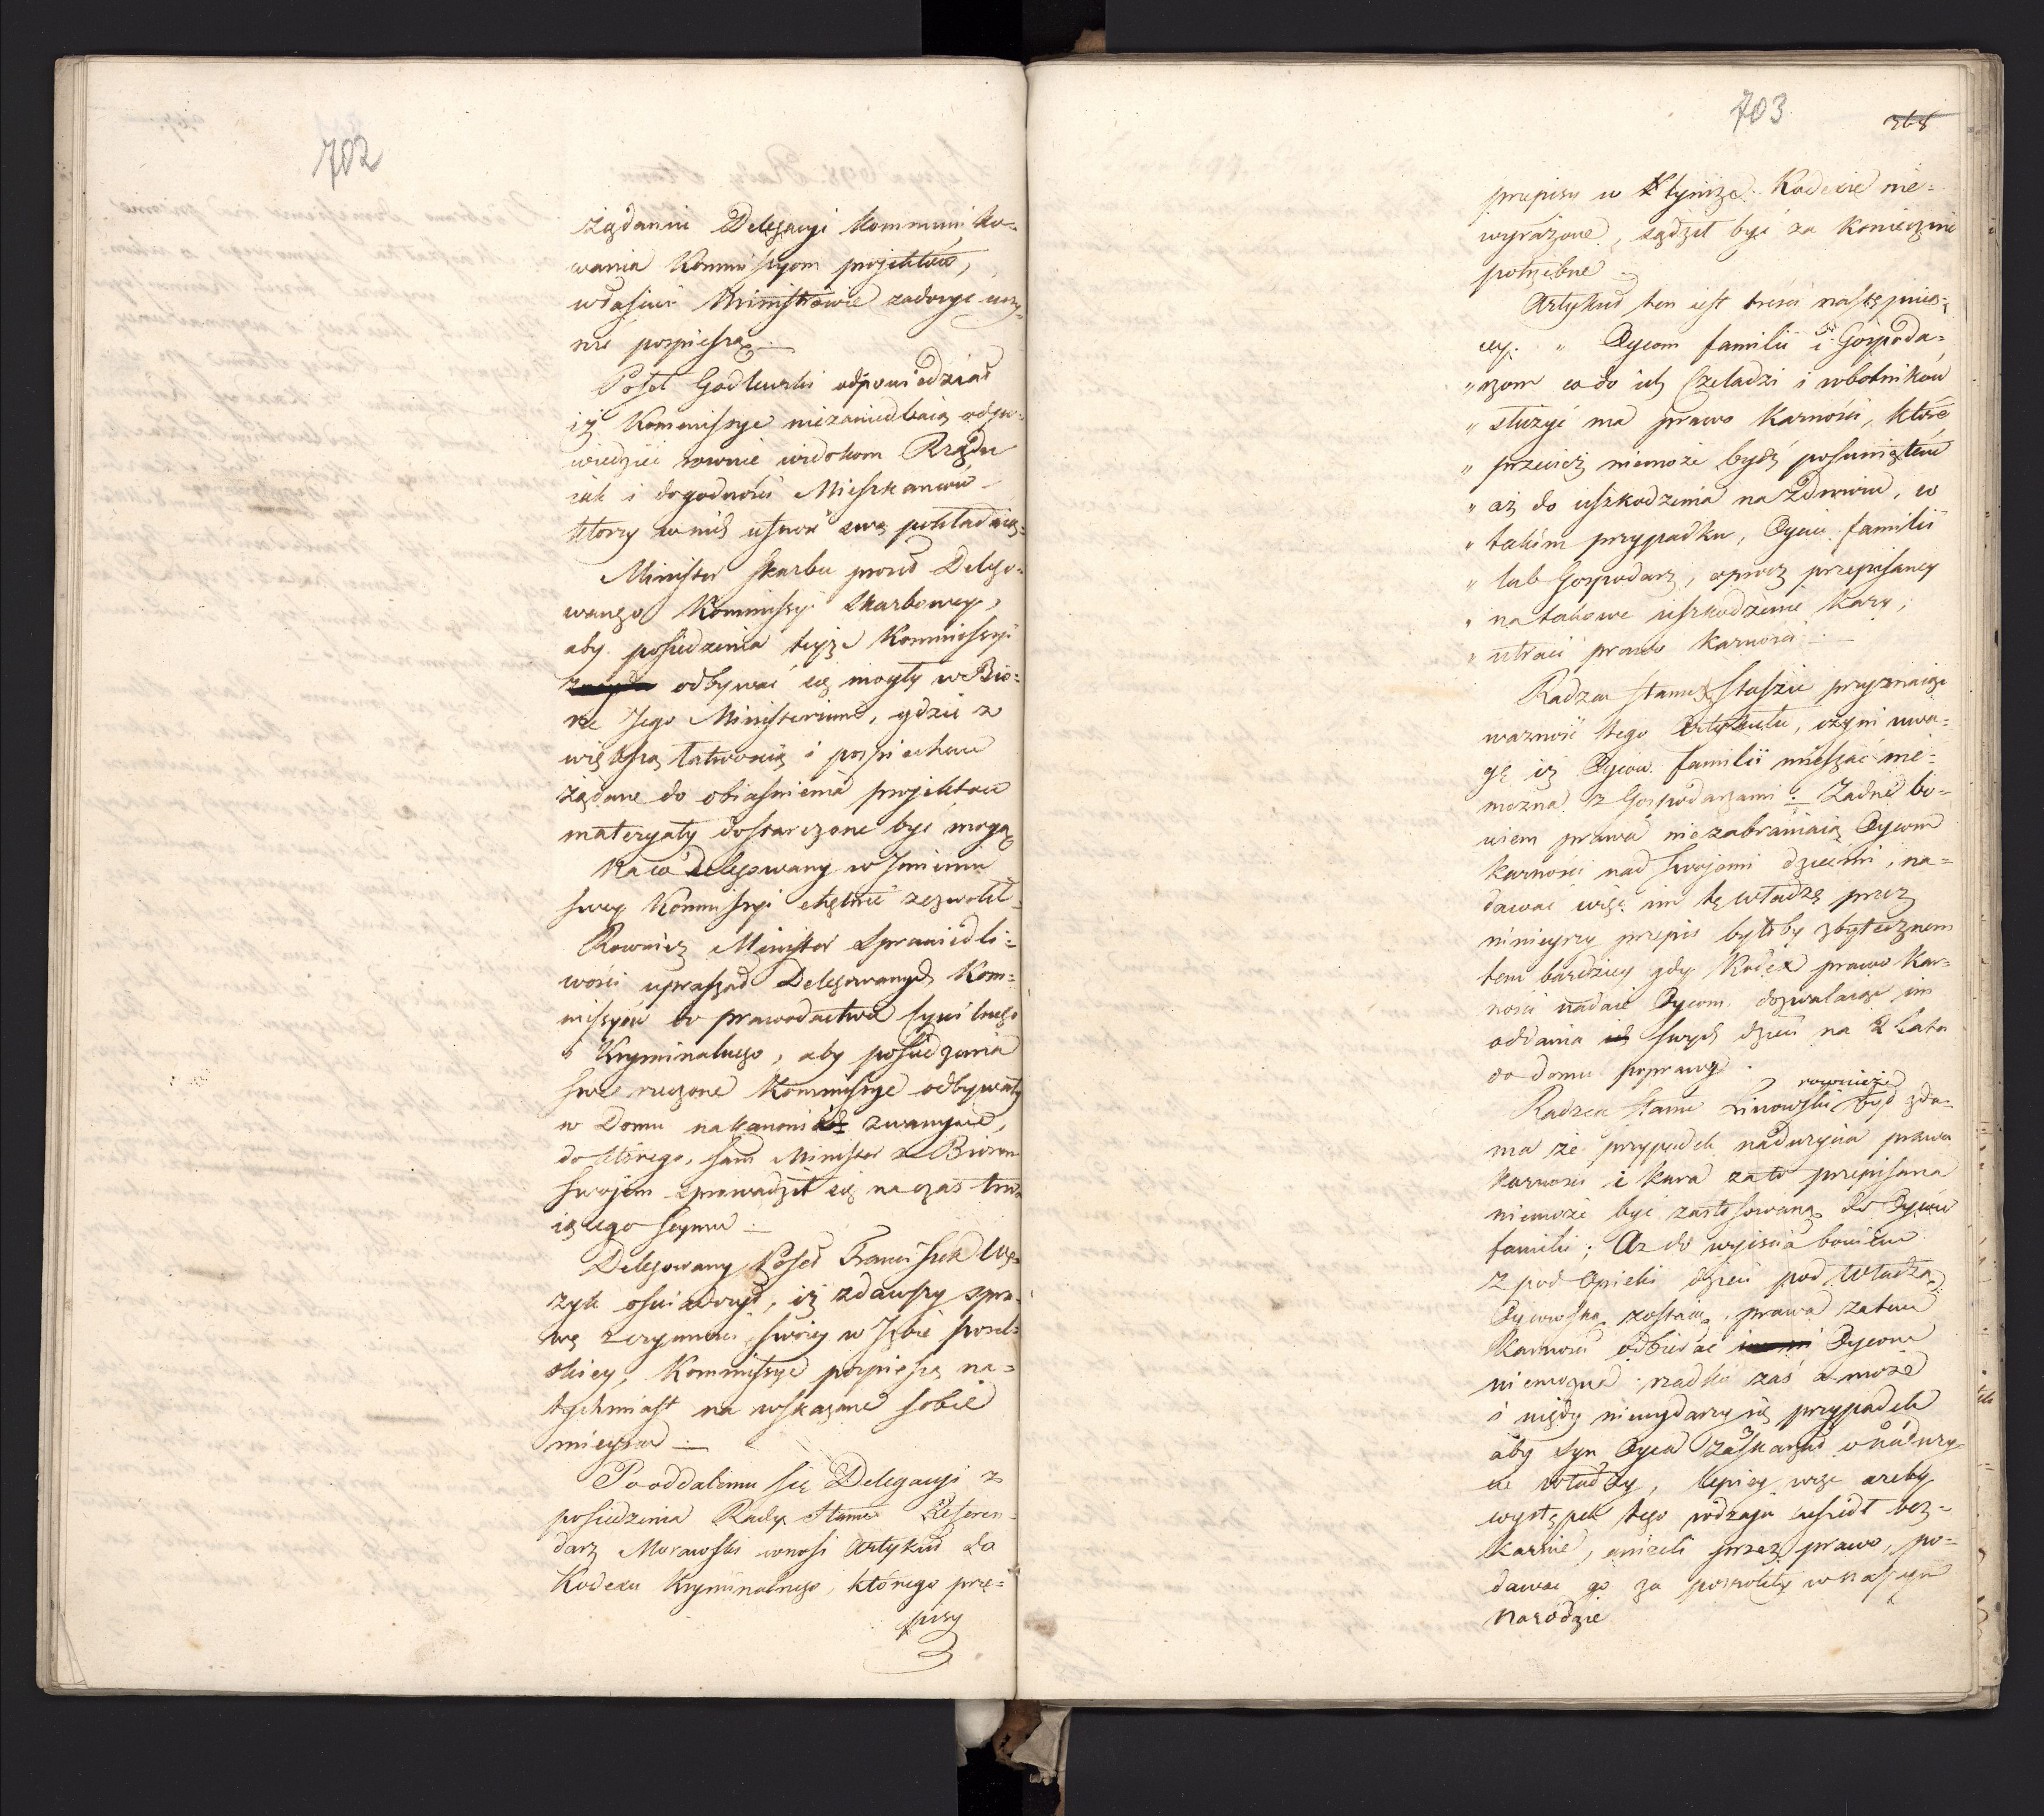 702
żądaniu Delegacyi kommuniko-
wania Kommissyom projektów,
właściwi Ministrowie zadosyć uczy-
nić pospieszą.
Poseł Godlewski odpowiedział
iż Kommissye niezaniedbaią odpo-
wiedzieć rownie widokom Rządu
iak i dogodności Mieszkancow
ktorzy w nich ufność swą pokładaią.
Minister Skarbu prosił Delego-
wanego Kommissyi Skarbowey,
aby posiedzenia teyże Kommissyi
odbywać się mogły w Bió-
rze Jego Ministerium, gdzie z
większą łatwością i pospiechem
żądane do obiaśnienia projektow
materyały dostarczone być mogą
Na co delegowany w Imieniu
swey Kommissyi chętnie zezwolił.
Rownież Minister Sprawiedli-
wości upraszał Delegowanych Kom-
missyów do prawodactwa Cywilnego
i Kryminalnego, aby posiedzenia
swe rzeczone Kommissye odbywały
w Domu na kanonii zwanym,
do którego, sam Minister z Biorem
swojem sprowadził się na czas trwa-
iącego Seymu.
Delegowany Poseł Franciszek Wę-
żyk oświadczył, iż zdawszy spra-
wę z czynności swoiey w Izbie posel-
skiey, Kommissye pospieszą na-
tychmiast na wskazane sobie
mieysce.
Po oddaleniu się Delegacyi z
posiedzenia Rady Stanu Referen-
darz Morawski wnosi Artykuł do
Kodexu Kryminalnego, którego prze-
pisy
703
368
przepisy w tymże Kodexie nie-
wyrażone, sądził być za koniecznie
potrzebne.
Artykuł ten iest treści następuią-
cey. „ Oycom familii i Gospoda-
„ rzom co do ich Czeladzi i robotników
„ służyć ma prawo karności, które
„ przecież niemoże bydź posuniętem
„ aż do uszkodzenia na zdrowiu, w
„ takim przypadku, Oyciec familii
„ lub Gospodarz, oprócz przepisaney
„ na takowe uszkodzenie kary,
„ utraci prawo karności.
Radzca Stanu Staszic przyznaiąc
ważność tego Artykułu, czyni uwa-
gę iż Oyców familii mieszać nie-
można z Gospodarzami. Żadne bo-
wiem prawa niezabraniaią Oycom
karności nad swojemi dziećmi, na-
dawać więc im tę władzę przez
ninieyszy przepis byłoby zbytecznem
tem bardziey gdy Kodex prawo kar-
ności nadaie Oycom dozwalaiąc im
oddania swych dzieci na 2 lata
do domu poprawy.
Radzca Stanu Linowski rownież był zda-
nia że przypadek nadużycia prawa
karności i kara za to przepisana
niemoże być zastosowaną do Oyców
familii; Aż do wyiścia bowiem
z pod Opieki dzieci pod Władzą
Oycowską zostaią, prawa zatem
karności odbierać Oycom
niemożna; rzadko zaś a może
i nigdy niewydarzy się przypadek
aby syn Oyca zaskarżał o naduży-
cie władzy, lepiey więc ażeby
występek tego rodzaju uszedł bez-
karnie, aniżeli przez prawo, po-
dawać go za pospolity w naszym
Narodzie